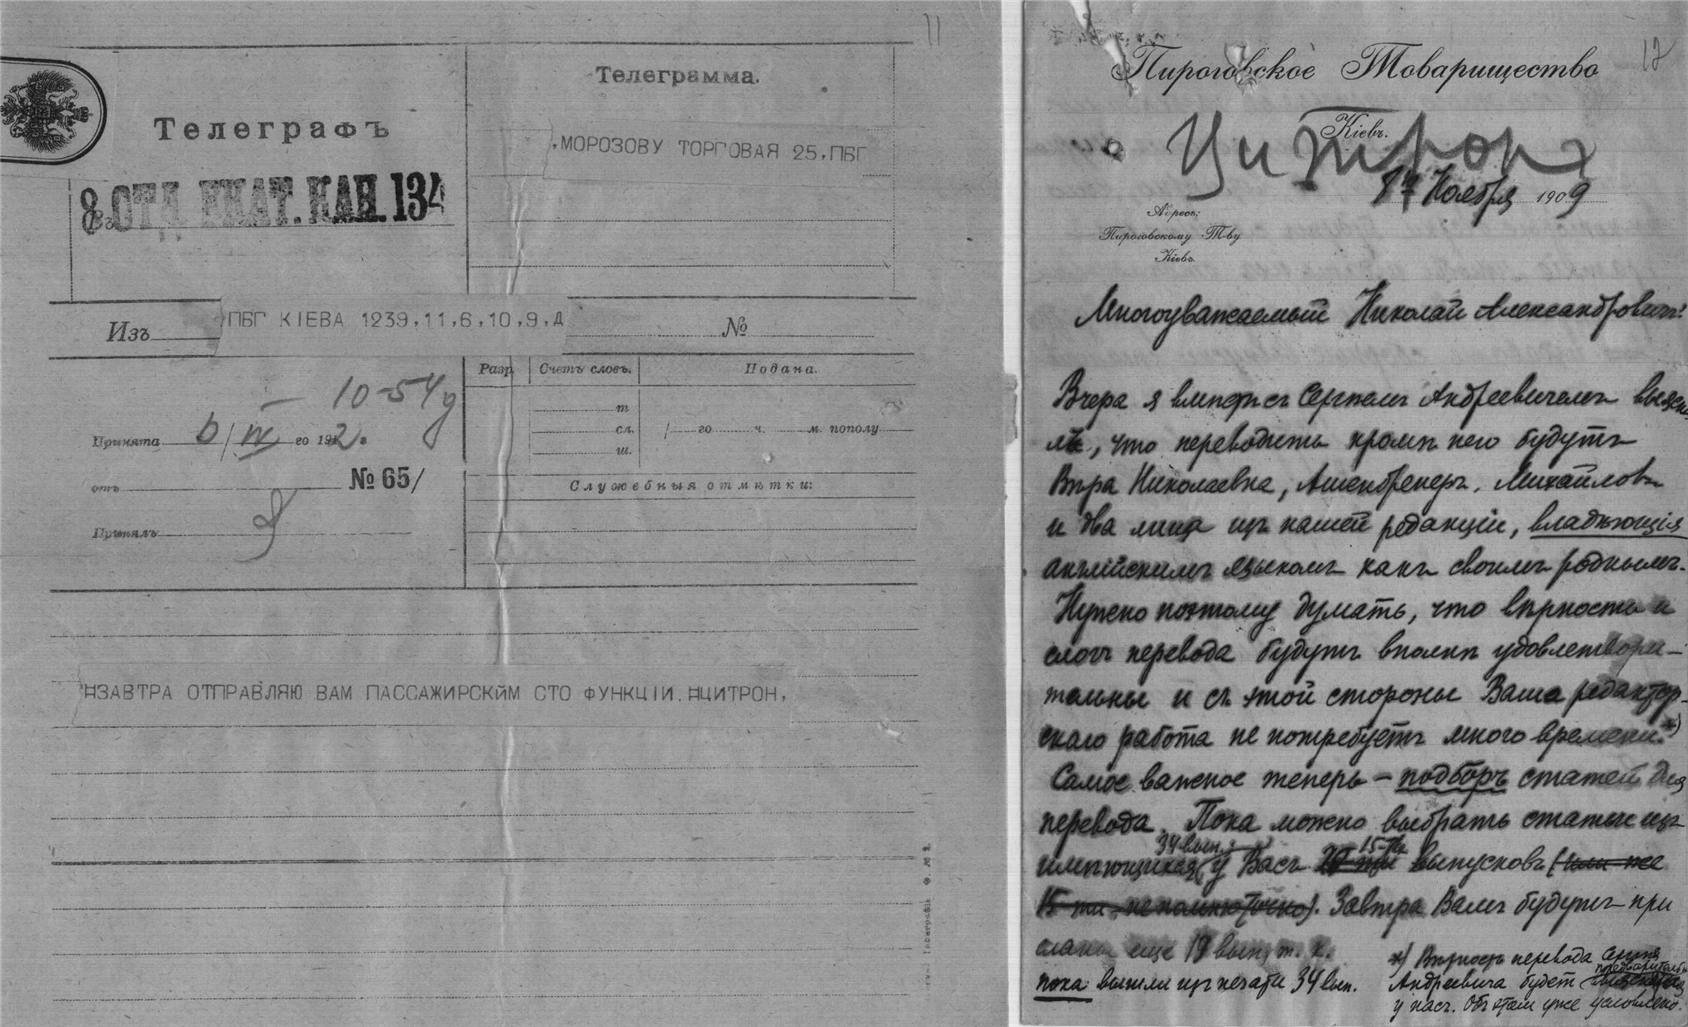 11
Телеграмма.
Телеграфъ
,МОРОЗОВУ ТОРГОВАЯ 25,ПБГ
8 ОТД. ЕКАТ. КАН. 134
Изъ
ПБГ КІЕВА 1239,11,6,10,9,Д
№
Разр.
Счетъ словъ.
Подана.
10-54
т
сл.
го ч. м. пополу
ш.
Принята 6/IV го 1912 г
отъ
№ 65/
Служебныя отмѣтки:
Принялъ
НЗАВТРА ОТПРАВЛЯЮ ВАМ ПАССАЖИРСКЙМ СТО ФУНКЦІИ.НЦИТРОН,
12
Пироговское Товарищество
Кіевъ.
Цитронъ
8го Ноября 1909
Адресъ:
Пироговскому Т-ву
Кіевъ.
Многоуважаемый Николай Александровичъ!
Вчера я вмѣстѣ съ Сергѣемъ Андреевичемъ выясни
лъ, что переводить кромѣ него будутъ
Вѣра Николаевна, Ашенбреннеръ, Михайловъ
и два лица изъ нашей редакціи, владѣющія
англійскимъ языкомъ какъ своимъ роднымъ.
Нужно поэтому думать, что вѣрность и
слогъ перевода будутъ вполнѣ удовлетвори-
тельны и съ этой стороны Ваша редактор-
ская работа не потребуетъ много времени.*)
Самое важное теперь – подборъ статей для
перевода. Пока можно выбрать статьи изъ
34 вып. 15-ти
имѣющихся у Васъ выпусковъ (или же
15 ти - не помню точно). Завтра Вамъ будутъ при
сланы еще 19 вып, т. к.
пока вышли изъ печати 34 вып.
*) Вѣрность перевода Сергѣя
Андреевича будет
у насъ. Объ этом уже условлено.